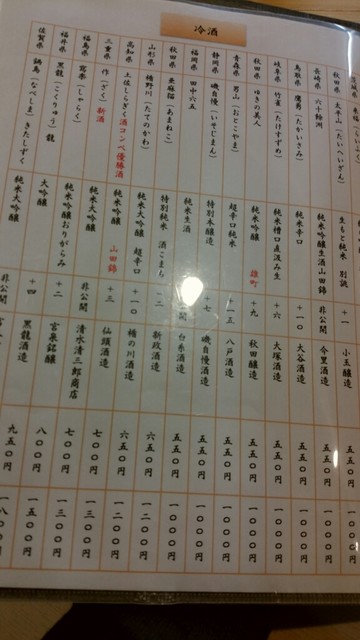 冷酒
秋田県 太平山(たいへいざん) 生もと純米 別誂 +一 小玉醸造 五五〇円 一〇〇〇円
長崎県 六十餘洲 純米吟醸生酒山田錦 非公開 今里酒造 五五〇円 一〇〇〇円
鳥取県 鷹勇(たかいさみ) 純米辛口 +一〇 大谷酒造 五五〇円 一〇〇〇円
岐阜県 竹雀(たけすずめ) 純米槽口直汲み生 +六 大塚酒造 五五〇円 一〇〇〇円
秋田県 ゆきの美人 純米吟醸 雄町 +九 秋田醸造 五五〇円 一〇〇〇円
青森県 男山(おとこやま) 超辛口純米 +一五 八戸酒造 五五〇円 一〇〇〇円
静岡県 磯自慢(いそじまん) 特別本醸造 +七 磯自慢酒造 五五〇円 一〇〇〇円
福岡県 田中六五 純米生酒 開 白糸酒造 五五〇円 一〇〇〇円
秋田県 亜麻猫(あまねこ) 特別純米 酒こまち 新政酒造 六五〇円 一二〇〇円
山形県 楯野川(たてのかわ) 純米大吟醸 超辛口 +一〇 楯の川酒造 六五〇円 一二〇〇円
高知県 土佐しらぎく酒コンペ優勝酒 純米吟醸 山田錦 +三 仙頭酒造 七〇〇円 一三〇〇円
三重県 作(ざく)新酒 純米大吟醸 非公開 清水清三郎商店 七〇〇円 一三〇〇円
福島県 寫楽(しゃらく) 純米吟醸おりがらみ +二 宮泉銘醸 八〇〇円 一五〇〇円
福井県 黒龍(こくりゅう)龍 大吟醸 +四 黒龍酒造 九五〇円 一八〇〇円
佐賀県 鍋島(なべしま)きたしずく 純米大吟醸 非公開